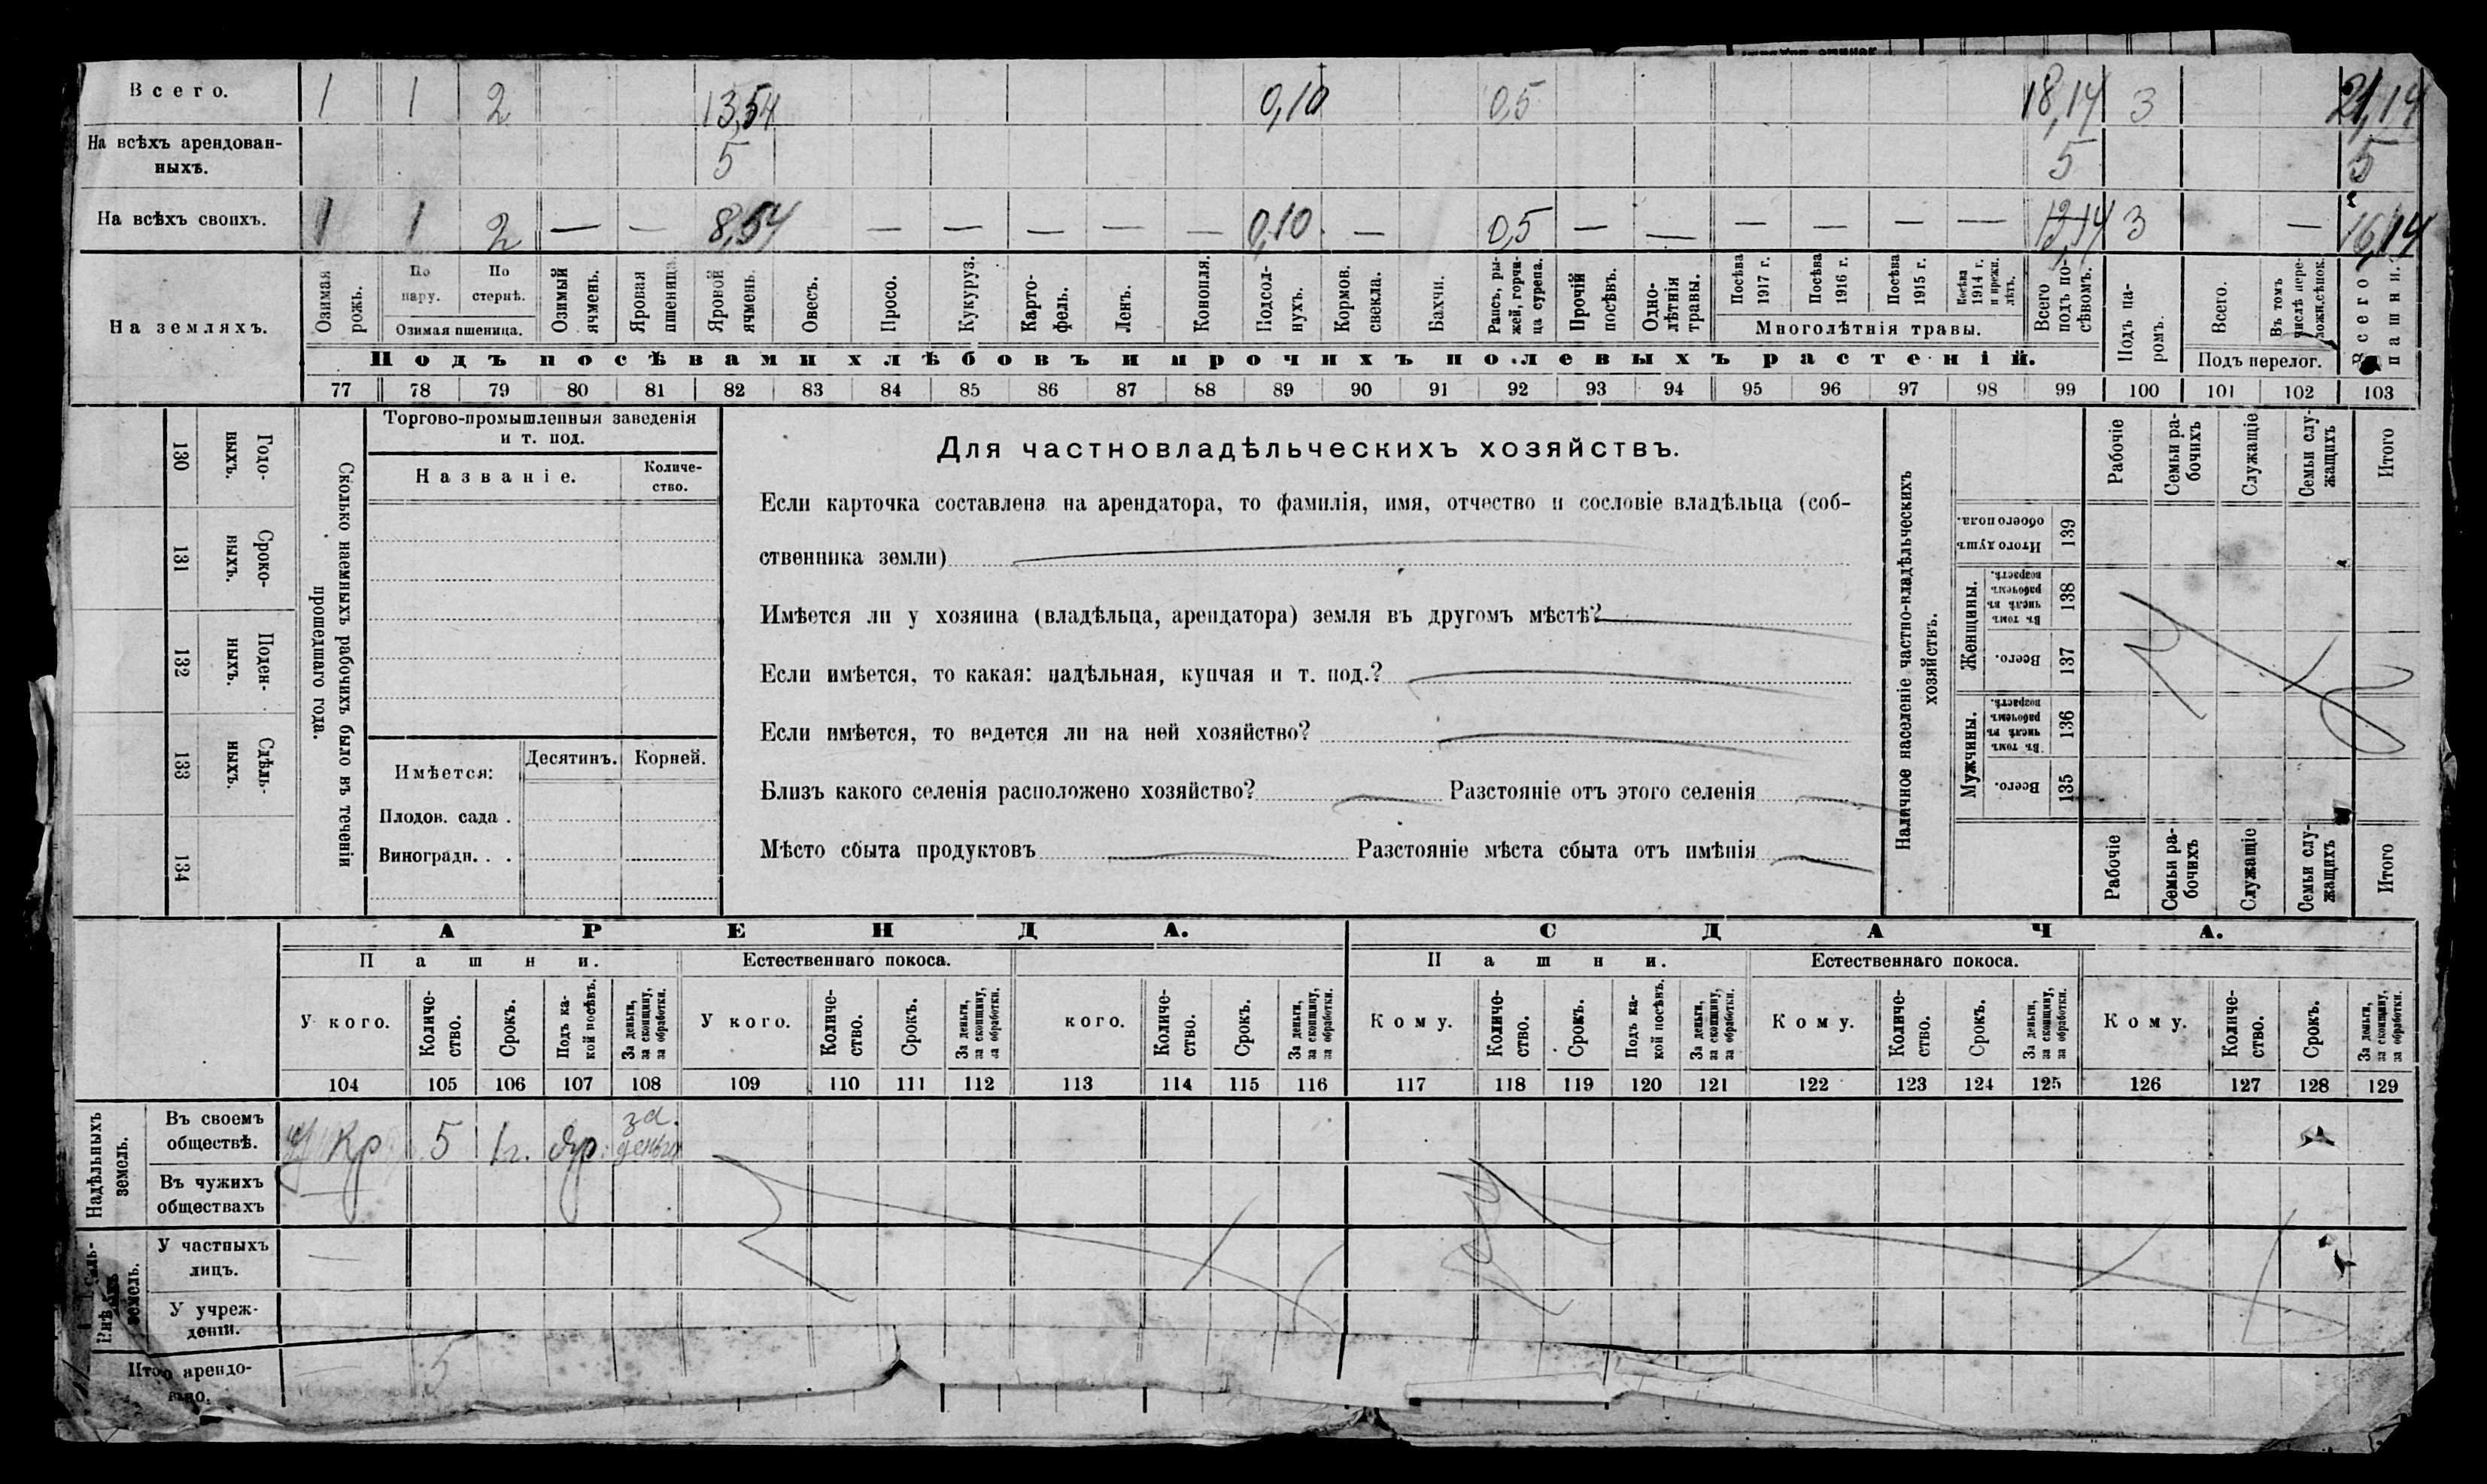 Всего. 1 1 2 13,54 0,10 0,5 18,14 3 21,14
На всѣхъ арендован-
ныхъ. 5 5 5
На всѣхъ своихъ. 1 1 2 — — 8,54 — — — — — 0,10 — 0,5 — — — — — — 13,14 3 — 16,14
На земляхъ.
Озимая рожь.
По пару.
По стернѣ.
Озимая пшеница.
Озимый ячмень.
Яровая пшеница.
Яровой ячмень.
Овесъ.
Просо.
Кукуруз.
Карто-
фель.
Ленъ.
Конопля.
Подсол-
нухъ.
Кормов.
свекла.
Бахчи.
Рапсъ, ры-
жей, горчи-
ца сурепа.
Прочій
посѣвъ.
Одно-
лѣтнія
травы.
Посѣва
1917 г.
Посѣва
1916 г.
Посѣва
1915 г.
Посѣва
1914 г.
и прежн.
лѣтъ.
Многолѣтнія травы.
Всего
подъ по-
сѣвомъ.
Подъ па-
ромъ.
Всего.
Въ томъ
числѣ пере-
ложн.сѣнок.
Подъ перелог.
Всего
пашни.
Подъ посѣвами хлѣбовъ и прочихъ полевыхъ растеній.
77 78 79 80 81 82 83 84 85 86 87 88 89 90 91 92 93 94 95 96 97 98 99 100 101 102 103
Годо-
выхъ.
130
Сроко-
ныхъ.
131
Поден-
ныхъ.
132
Сдѣль-
ныхъ.
133
134
Сколько наемныхъ рабочихъ было въ теченіи
прошедшаго года.
Торгово-промышленныя заведенія
и т. под.
Названіе.
Количе-
ство.
Имѣется:
Десятинъ. Корней.
Плодов. сада .
Виноградн. . .
Для частновладѣльческихъ хозяйствъ.
Если карточка составлена на арендатора, то фамилія, имя, отчество и сословіе владѣльца (соб-
ственника земли)
Имѣется ли у хозяина (владѣльца, арендатора) земля въ другомъ мѣстѣ?
Если имѣется, то какая: надѣльная, купчая и т. под.?
Если имѣется, то ведется ли на ней хозяйство?
Близъ какого селенія расположено хозяйство? Разстояніе отъ этого селенія
Мѣсто сбыта продуктовъ Разстояніе мѣста сбыта отъ имѣнія
Наличное населеніе частно-владѣльческихъ
хозяйствъ.
Рабочіе
Семьи ра-
бочихъ
Служащіе
Семьи слу-
жащихъ
Итого
Итого душъ
обоего пола.
139
Женщины.
Въ томъ
числѣ въ
рабочемъ
возрастѣ.
138
Всего.
137
Мужчины.
Въ томъ
числѣ въ
рабочемъ
возрастѣ.
136
Всего.
135
Рабочіе
Семьи ра-
бочихъ
Служащіе
Семьи слу-
жащихъ
Итого
АРЕНДА. СДАЧА.
Пашни. Естественнаго покоса. Пашни. Естественнаго покоса.
У кого.
Количе-
ство.
Срокъ.
Подъ ка-
кой посѣвъ.
За деньги,
за скопщину,
за обработки.
У кого.
Количе-
ство.
Срокъ.
За деньги,
за скопщину,
за обработки.
кого.
Количе-
ство.
Срокъ.
За деньги,
за скопщину,
за обработки.
Кому.
Количе-
ство.
Срокъ.
Подъ ка-
кой посѣвъ.
За деньги,
за скопщину,
за обработки.
Кому.
Количе-
ство.
Срокъ.
За деньги,
за скопщину,
за обработки.
Кому.
Количе-
ство.
Срокъ.
За деньги,
за скопщину,
за обработки.
104 105 106 107 108 109 110 111 112 113 114 115 116 117 118 119 120 121 122 123 124 125 126 127 128 129
Надѣльныхъ
земель.
Въ своемъ
обществѣ. у Кр 5 1 г. Яр. за
деньги
Въ чужихъ
обществахъ —
земель.
У частныхъ
лицъ. —
У учреж-
деній.
Итого арендо-
вано. — 5